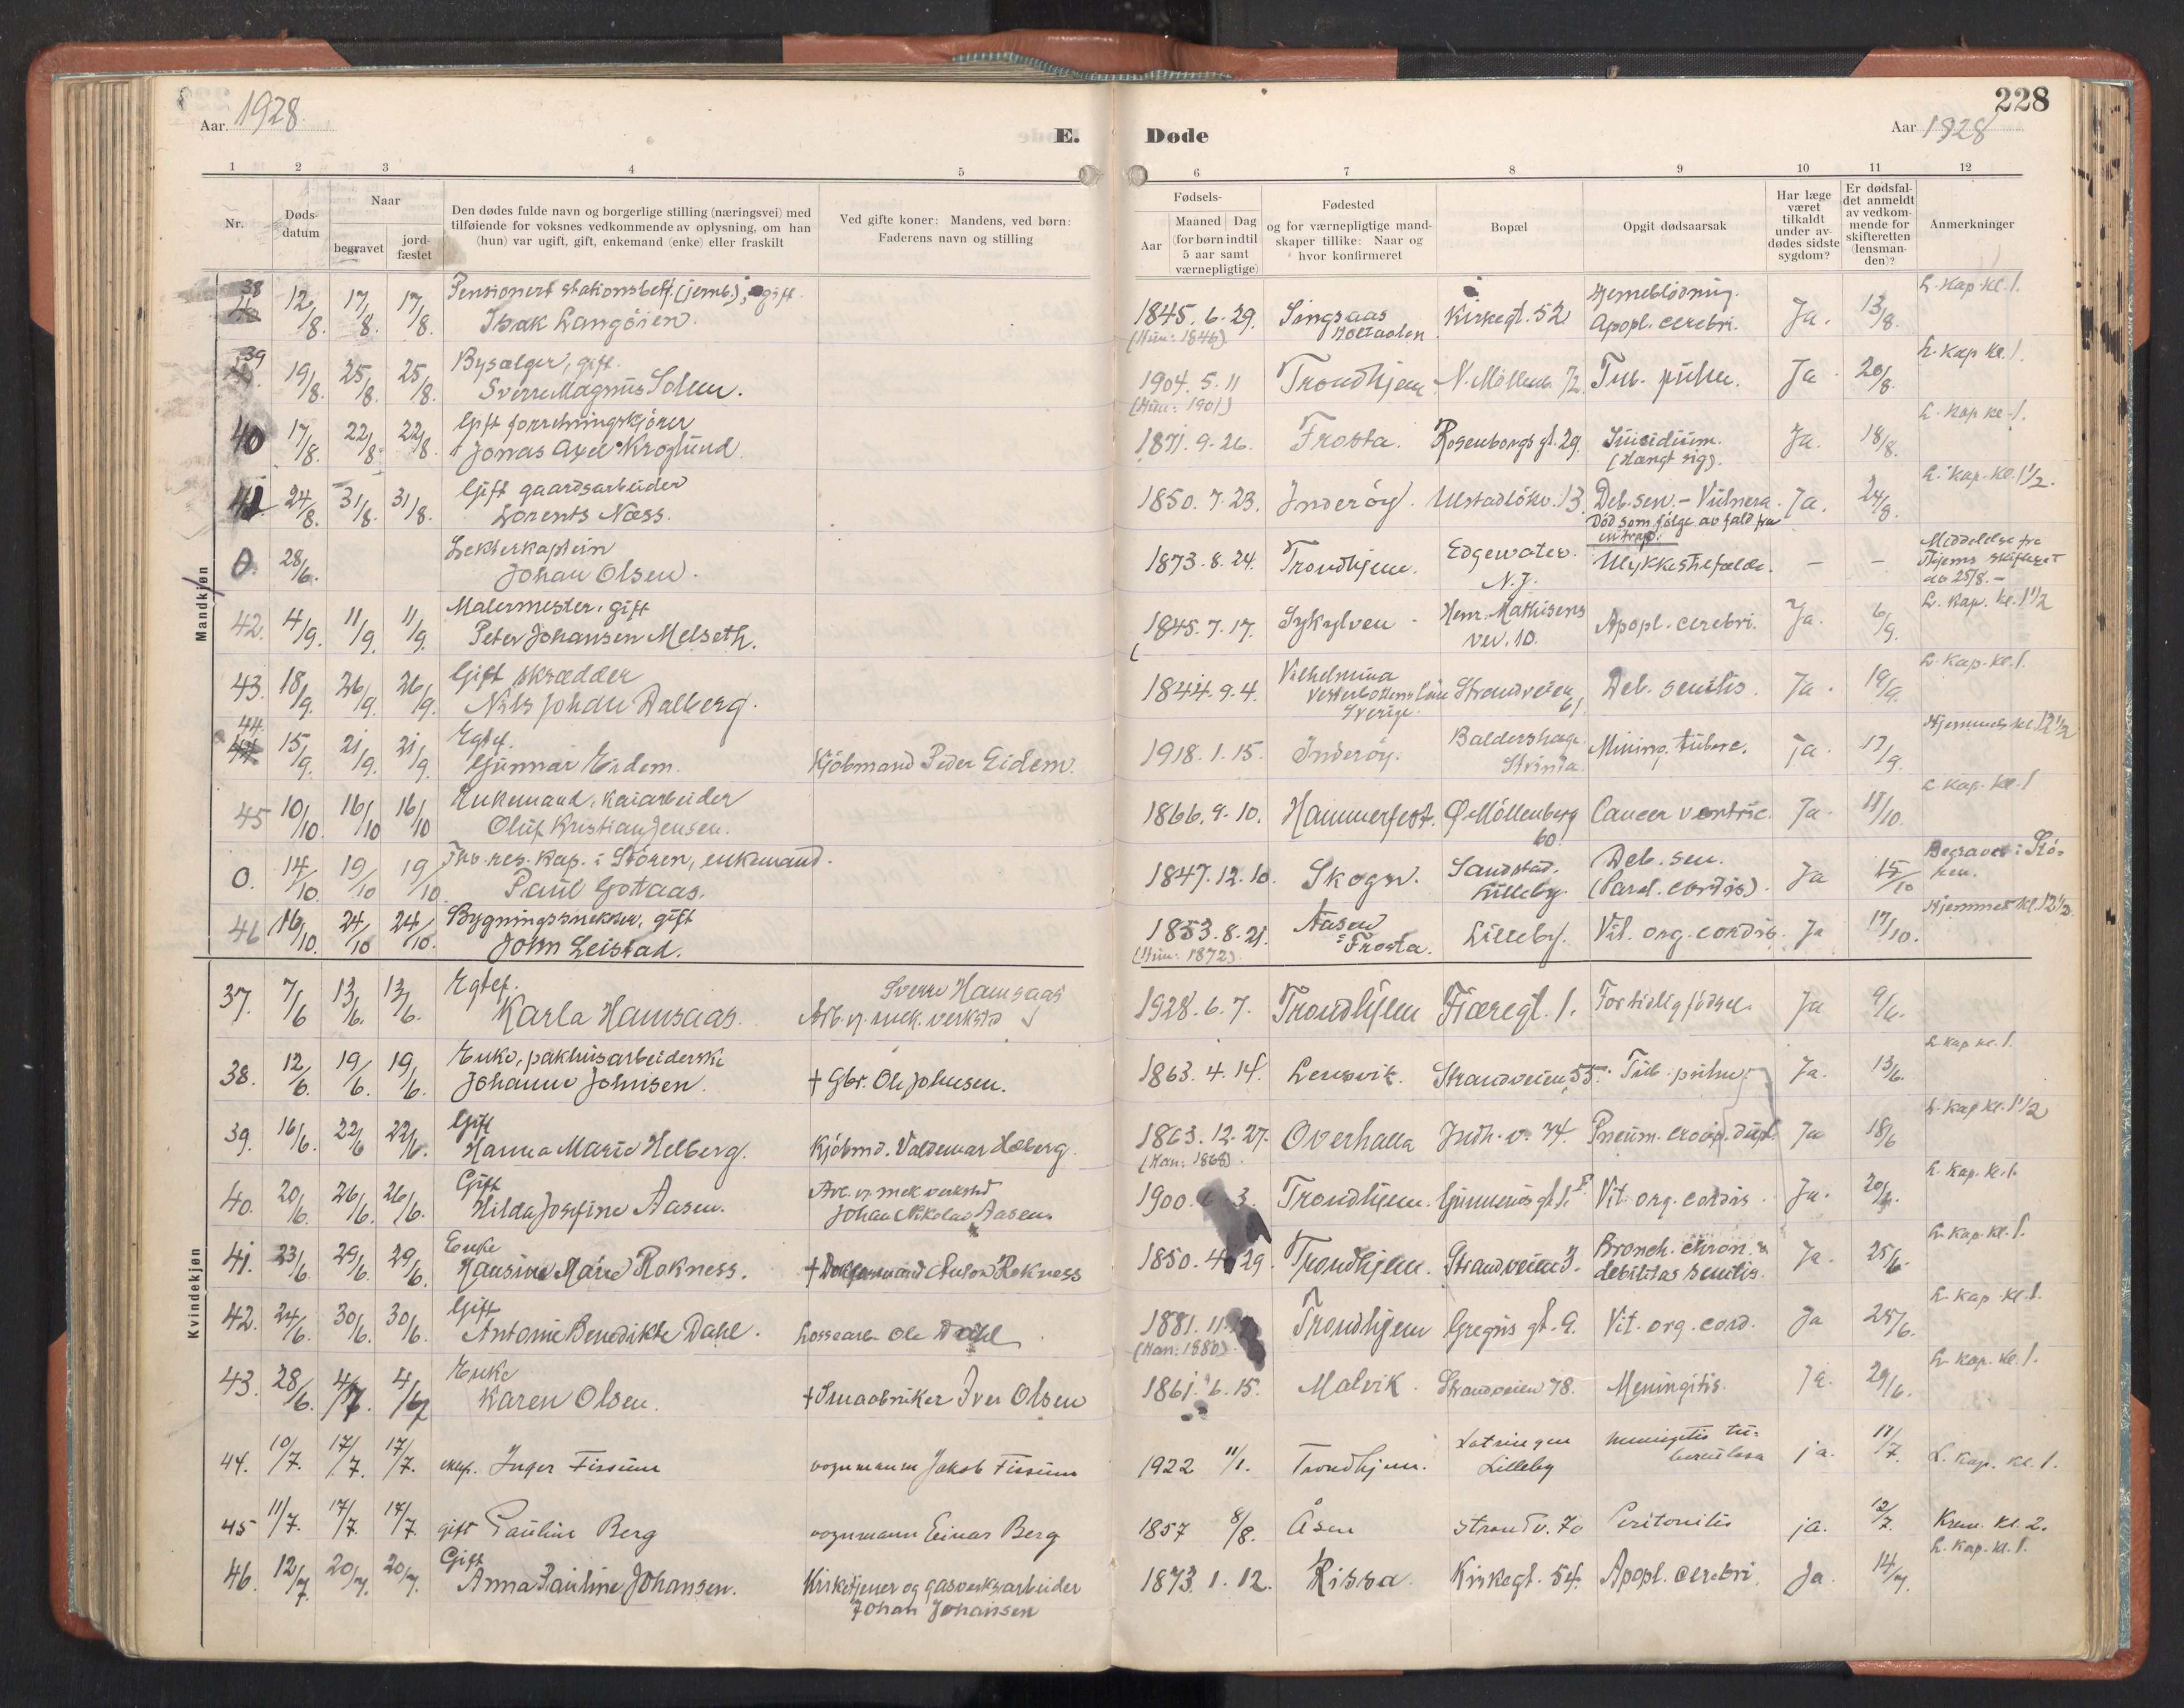 Aar. 1928.
E. Døde
228
Aar 1928
1 2 3 4 5 6 7 8 9 10 11 12
Nr.
Døds-
datum
Naar
begravet
jord-
fæstet
Den dødes fulde navn og borgerlige stilling (næringsvei) med
tilføiende for voksnes vedkommende av oplysning, om han
(hun) var ugift, gift, enkemand (enke) eller fraskilt
Ved gifte koner: Mandens, ved børn:
Faderens navn og stilling
Fødsels-
Aar
Maaned Dag
(for børn indtil
5 aar samt
værnepligtige)
Fødested
og for værnepligtige mand-
skaper tillike: Naar og
hvor konfirmeret
Bopæl
Opgit dødsaarsak
Har læge
været
tilkaldt
under av-
dødes sidste
sygdom?
Er dødsfal-
det anmeldt
av vedkom-
mende for
skifteretten
(lensman-
den)?
Anmerkninger
Mandkjøn
38 12/8. 17/8. 17/8. Pensionert stationsbetj. (jernb.), gift.
Isak Langöien.
1845. 6. 29. Singsaas Kirkegt. 52 Hjerneblödning. Ja. 13/8. L. kap. kl. 1.
Holtaalen Apopl. cerebri.
39 19/8. 25/8. 25/8. Bysælger, gift.
Sverre Magnus Solem.
1904. 5. 11 Trondhjem N. Möllenb. 72. Tub. pulm. Ja. 20/8. L. kap kl. 1.
(Hun: 1901)
40 17/8. 22/8. 22/8. Gift forretningskjörer
Jonas Axel Kroglund.
1871. 9. 26. Frosta. Rosenborgs gt. 29. Suicidium. Ja. 18/8. L. kap kl. 1.
(Hængt sig).
41. 24/8. 31/8. 31/8. Gift gaardsarbeider
Lorents Næss.
1850. 7. 23. Inderöy. Ulstadlökv. 13. Deb. sen. - Vulnera. Ja. 24/8. L. kap. kl. 1 1/2.
Död som fölge av fald fra
en trap.
0. 28/6. Lekterkaptein
Johan Olsen.
1873. 8. 24. Trondhjem. Edgewater. N. J. Ulykkestilfælde. - - Meddelelse fra
Thjems skifteret
av 25/8. -
42. 4/9. 11/9. 11/9. Malermester, gift
Peter Johansen Melseth.
1845. 7. 17. Sykylven - Henr. Mathisens
vei. 10. Apopl. cerebri. Ja. 6/9. L. kap. kl. 1 1/2
43. 18/9. 26/9. 26/9. Gift skrædder
Nils Johan Dalberg.
1844. 9. 4. Vilhelmina
Vesterbottens län
Sverige. Strandveien
61. Deb. senilis. Ja. 19/9. L. kap. kl. 1.
44. 15/9. 21/9. 21/9. Egtef.
Gunnar Eidem. Kjöbmand Peder Eidem.
1918. 1. 15. Inderöy. Baldershage.
Strinda. Mining. tuberc. ja. 17/9. Hjemmet kl. 12 1/2
45 10/10. 16/10 16/10 Enkemand, kaiarbeider
Oluf Kristian Jensen.
1866. 9. 10. Hammerfest. Ø. Möllenberg
60. Cancer ventric. Ja. 11/10. L. kap. kl. 1
0. 14/10. 19/10 19/10. Fhv. res. kap. i Stören, enkemand.
Paul Gotaas.
1847. 12. 10. Skogn. Sandstad.
Lilleby. Deb. sen.
(Paral. cordis). Ja 15/10 Begravet i Stö-
ren.
46 16/10. 24/10 24/10. Bygningssnekker, gift
John Leistad.
1853. 8. 21. Aasen
i Frosta. Lilleby. Vit. org. cordis. Ja 17/10. Hjemmet kl. 12 1/2.
(Hun: 1872).
Kvindekjøn
37. 7/6 13/6. 13/6. Egtef.
Karla Hamsaas. Sverre Hamsaas
Arb. v. mek. verksted
1928. 6. 7. Trondhjem Fjæregt. 1. For tidlig födsel. Ja 9/6.
38. 12/6 19/6. 19/6. Enke, pakhusarbeiderske
Johanne Johnsen. † Gbr. Ole Johnsen.
1863. 4. 14. Lensvik. Strandveien 55. Tub. pulm. Ja. 13/6. L. kap kl. 1.
39. 16/6. 22/6 22/6. Gift
Hanna Marie Helberg. Kjöbmd. Valdemar Helberg.
1863. 12. 27. Overhalla Indh. v. 74. Pneum. croup. dupl. Ja 18/6 L. kap kl. 1 1/2
(Man: 1868).
40. 20/6. 26/6. 26/6. Gift
Hilda Josefine Aasen. Arb. v. mek. verksted
Johan Nikolai Aasen.
1900. 3. Trondhjem. Gunnerus gt. 1. Vit. org. cordis. Ja. 20/6. L. kap. kl. 1.
41. 23/6. 29/6. 29/6. Enke
Hansine Marie Rokness. † Anton Rokness
1850. 4. 29. Trondhjem. Strandveien 3. Bronch. chron. &
debilitas senilis. Ja. 25/6. L. kap. kl. 1.
42. 24/6. 30/6. 30/6. Gift
Antonie Benedikte Dahl. Lossearb. Ole Dahl
1881. 11. Trondhjem Gregus gt. 9. Vit. org. cord. Ja 25/6. L. kap kl. 1.
(Man: 1880).
43. 28/6. 4/7. 4/7 Enke
Karen Olsen. † Smaabruker Iver Olsen
1861. 6. 15. Malvik. Strandveien 78. Meningitis. Ja. 29/6. L. kap. kl. 1.
44. 10/7. 17/7. 17/7. Inger Fissum vognmann Jakob Fissum
1922 11/1. Trondhjem. Lilleby meningitis tu-
berculosa ja. 11/7. L. kap. kl. 1.
45 11/7. 17/7. 17/7. gift Pauline Berg vognmann Einar Berg
1857 8/8. Åsen Strandv. 70 Peritonitis ja. 12/7. Krem. kl. 2.
46. 12/7. 20/7. 20/7. Gift
Anna Pauline Johansen. Kirketjener og gasverksarbeider
Johan Johansen
1873. 1. 12. Rissa. Kirkegt. 54. Apopl. cerebri. Ja. 14/7. L. kap. kl. 1.